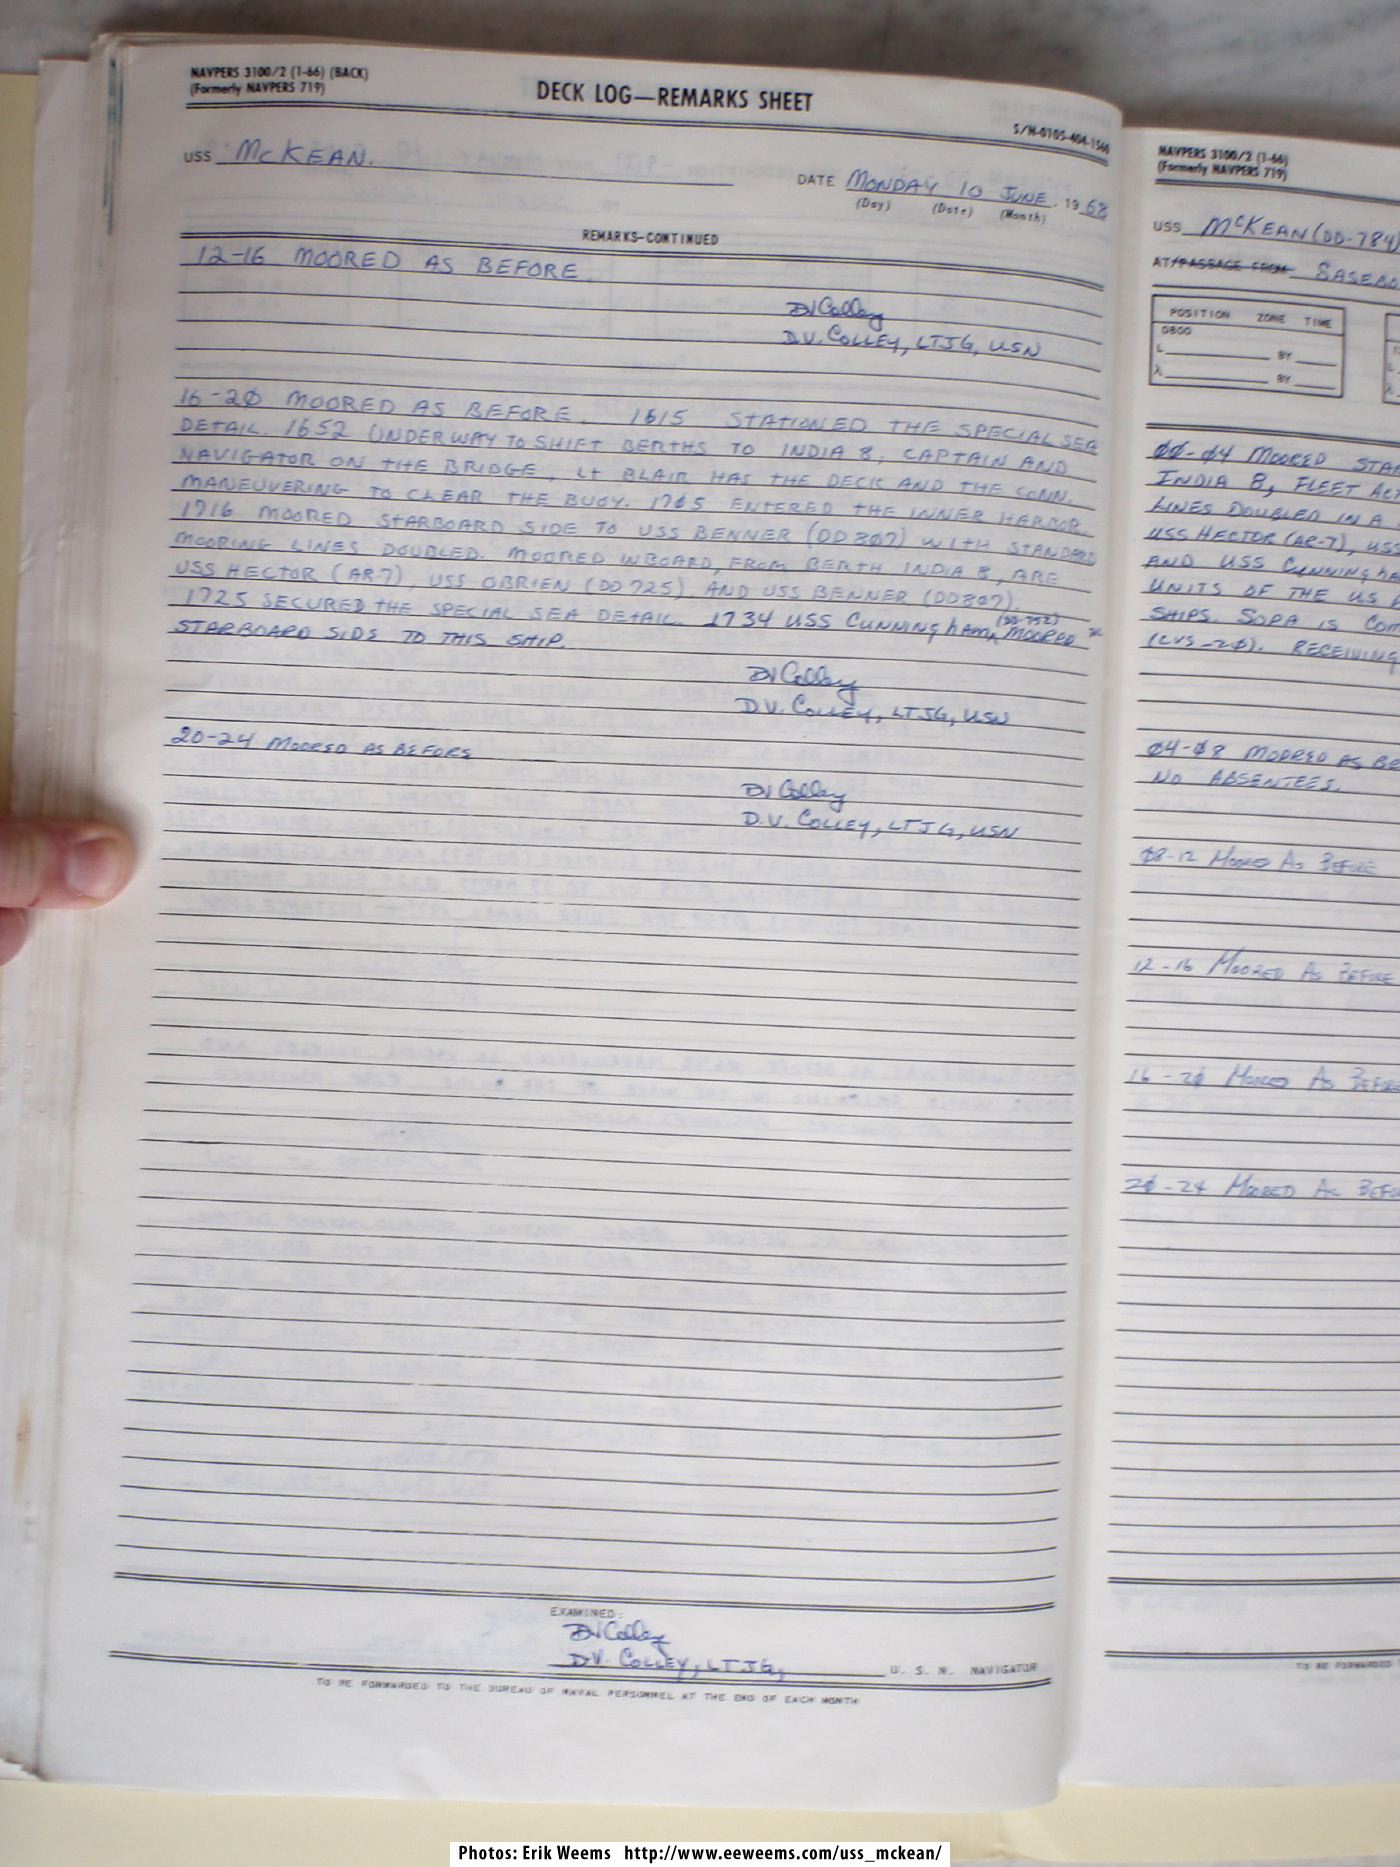 NAVPERS 3100/2 (1-66) (BACK)
(Formerly NAVPERS 719)
DECK LOG—REMARKS SHEET
S/N-0105-404-1560
USS McKEAN.
DATE MONDAY 10 JUNE. 1968
(Day) (Date) (Month)
REMARKS—CONTINUED
12-16 MOORED AS BEFORE.
DVColley
D.V. COLLEY, LTJG, USN
16-20 MOORED AS BEFORE. 1615 STATIONED THE SPECIAL SEA
DETAIL. 1652 UNDERWAY TO SHIFT BERTHS TO INDIA 8, CAPTAIN AND
NAVIGATOR ON THE BRIDGE, LT BLAIR HAS THE DECK AND THE CONN.
MANEUVERING TO CLEAR THE BUOY. 1705 ENTERED THE INNER HARBOR.
1716 MOORED STARBOARD SIDE TO USS BENNER (DD807) WITH STANDARD
MOORING LINES DOUBLED. MOORED INBOARD, FROM BERTH INDIA 8, ARE
USS HECTOR (AR-7), USS OBRIEN (DD725) AND USS BENNER (DD807).
1725 SECURED THE SPECIAL SEA DETAIL. 1734 USS CUNNINGHAM (DD-752) MOORED
STARBOARD SIDE TO THIS SHIP.
DVColley
D.V. COLLEY, LTJG, USN
20-24 MOORED AS BEFORE
DVColley
D.V. COLLEY, LTJG, USN
EXAMINED:
DVColley
D.V. COLLEY, LTJG, U. S. N. NAVIGATOR
TO BE FORWARDED TO THE BUREAU OF NAVAL PERSONNEL AT THE END OF EACH MONTH
NAVPERS 3100/2 (1-66)
(Formerly NAVPERS 719)
USS McKEAN (DD-784)
AT/PASSAGE FROM SASEBO
POSITION ZONE TIME
0800
L BY
λ BY
00-04 MOORED
INDIA 8, FLEET
LINES DOUBLED IN A
USS HECTOR (AR-7),
AND USS CUNNINGHA
UNITS OF THE US
SHIPS. SOPA IS COM
(CVS-20). RECEIVING
04-08 MOORED AS BE
NO ABSENTEES.
08-12 MOORED AS BEFORE
12-16 MOORED AS BEFORE
16-20 MOORED AS BEFORE
20-24 MOORED AS BEFO
TO BE FORWARDED
Photos: Erik Weems http://www.eeweems.com/uss_mckean/